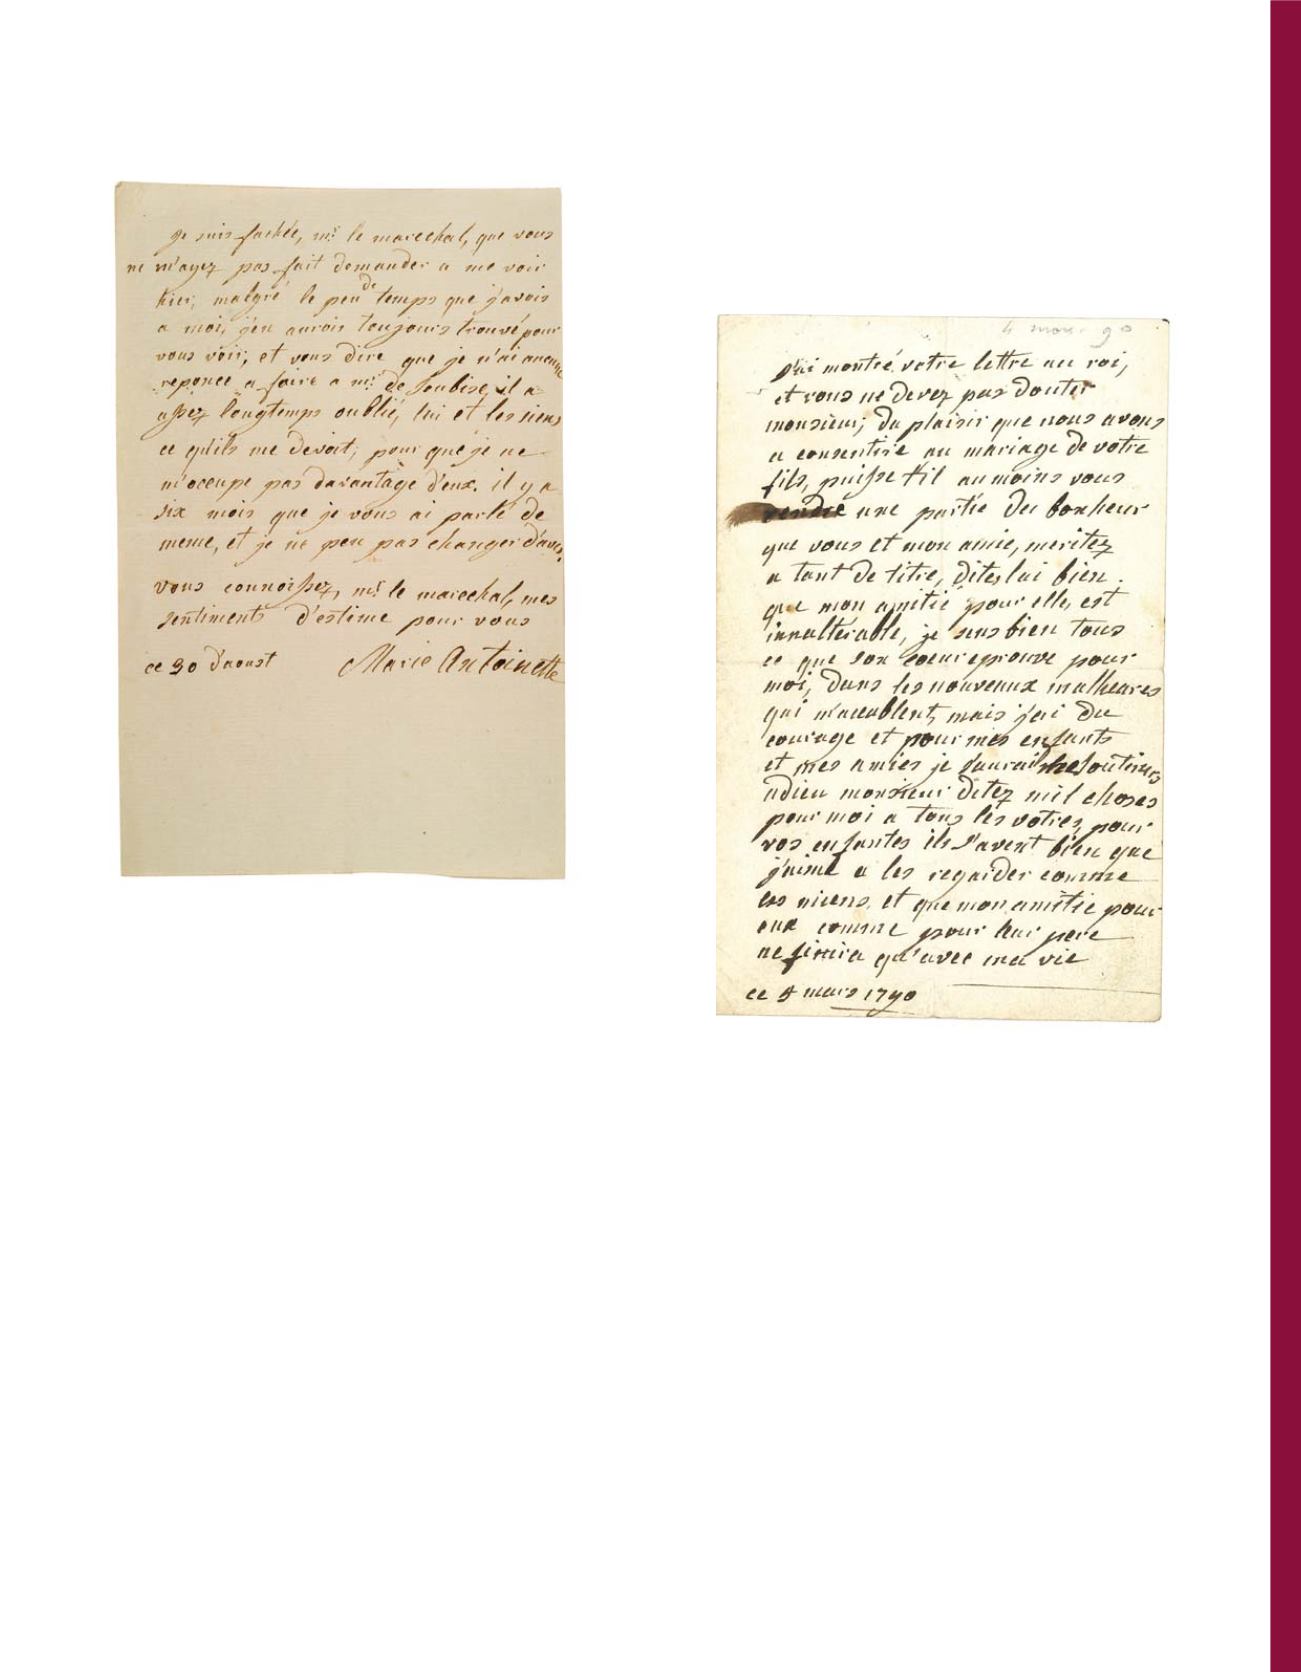 je suis fachée, mr le marechal, que vous
ne m'ayez pas fait demander a me voir
hier, malgré le peu de temps que j'avois
a moi, j'en aurois toujours trouvé pour
vous voir, et vous dire que je n'ai aucune
reponce a faire a mr de Soubise, il a
assez longtemps oublié, lui et les siens
ce qu'ils me devoit, pour que je ne
m'occupe pas davantage d'eux. il y a
six mois que je vous ai parlé de
meme, et je ne peu pas changer d'avis.
vous connoissez, mr le marechal, mes
sentiments d'estime pour vous
ce 30 d'aoust Marie Antoinette
4 mars 90
j'ai montré votre lettre au roi,
et vous ne devez pas douter
monsieur, du plaisir que nous avons
a consentire au mariage de votre
fils, puisse t'il au moins vous
rendre une partie du bonheur
que vous et mon amie, meritez
a tant de titre, dites lui bien
que mon amitié pour elle, est
innalterable, je sens bien tous
ce que son coeur eprouve pour
moi, dans les nouveaux malheures
qui m'accablent, mais j'ai du
courage et pour mes enfants
et mes amies je saurai me soutenir
adieu monsieur ditez mil choses
pour moi a tous les votres, pour
vos enfantes ils s'avent bien que
j'aime a les regarder comme
les miens, et que mon amitie pour
eux comme pour leur pere
ne finira qu'avec ma vie
ce 5 mars 1790